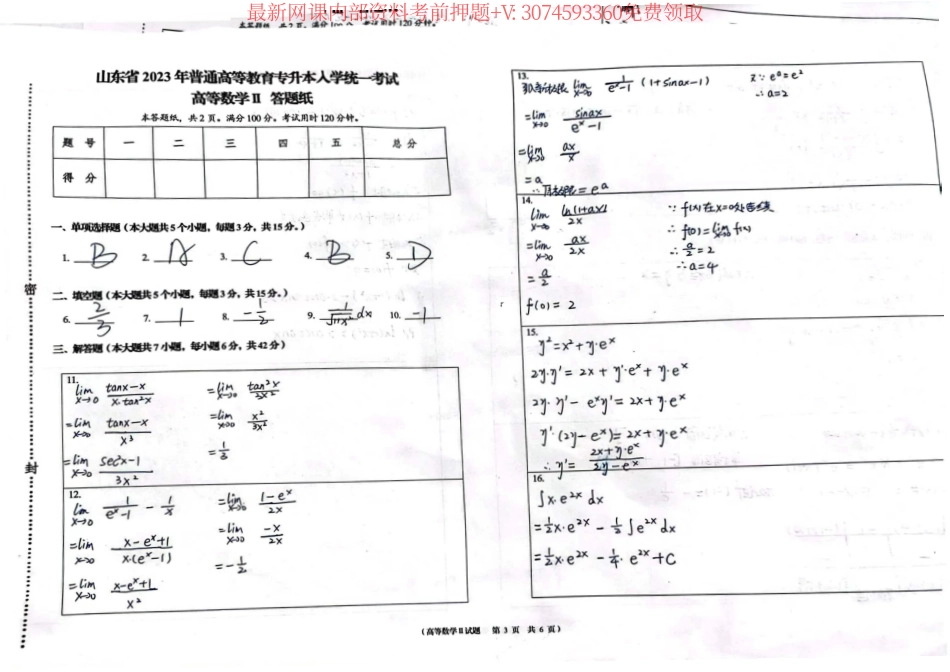 最新网课内部资料考前押题+V: 3074593360免费领取
山东省 2023 年普通高等教育专升本入学统一考试
高等数学Ⅱ 答题纸
本答题纸，共2页。满分100分。考试用时120分钟。
题 号 一 二 三 四 五 总 分
得 分
一、单项选择题（本大题共5个小题，每题3分，共15分。）
1. B 2. A 3. C 4. B 5. D
二、填空题（本大题共5个小题，每题3分，共15分。）
6. 2/3 7. 1 8. -1/2 9. 1/√(1+x²) dx 10. -1
三、解答题（本大题共7小题，每小题6分，共42分）
11.
lim x→0 (tanx-x)/(x·tan²x)
=lim x→0 (tanx-x)/x³
=lim x→0 (sec²x-1)/3x²
=lim x→0 tan²x/3x²
=lim x→0 x²/3x²
=1/3
12.
lim x→0 1/(eˣ-1) - 1/x
=lim x→0 (x-eˣ+1)/(x·(eˣ-1))
=lim x→0 (x-eˣ+1)/x²
=lim x→0 (1-eˣ)/2x
=lim x→0 -x/2x
=-1/2
密
封
13.
lim x→0 1/(eˣ-1) (1+sinax-1)
=lim x→0 sinax/(eˣ-1)
=lim x→0 ax/x
=a
∴原极限=eᵃ
又∵eᵃ=e²
∴a=2
14.
lim x→0 ln(1+ax)/2x
=lim x→0 ax/2x
=a/2
f(0)=2
∵f(x)在x=0处连续
∴f(0)=lim x→0 f(x)
∴a/2=2
∴a=4
15.
y²=x²+y·eˣ
2y·y'=2x+y'·eˣ+y·eˣ
2y·y'-eˣy'=2x+y·eˣ
y'·(2y-eˣ)=2x+y·eˣ
∴y'=(2x+y·eˣ)/(2y-eˣ)
16.
∫x·e²ˣ dx
=1/2x·e²ˣ-1/2∫e²ˣ dx
=1/2x·e²ˣ-1/4·e²ˣ+C
（高等数学Ⅱ试题 第 3 页 共 6 页）